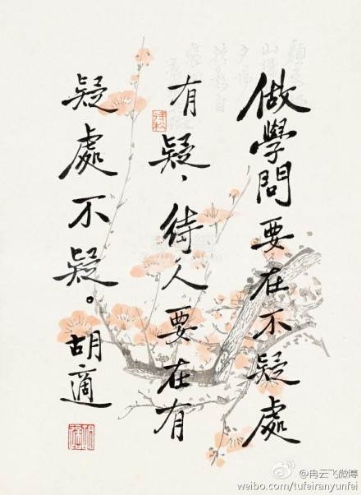 做學問要在不疑處
有疑，待人要在有
疑處不疑。胡適
@冉云飞微博
weibo.com/tufeiranyunfei